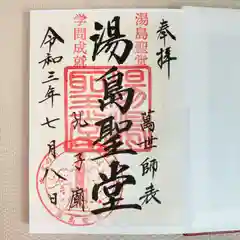 奉拝
萬世師表
湯島聖堂
湯島聖堂
孔子廟
学問成就
令和三年七月八日